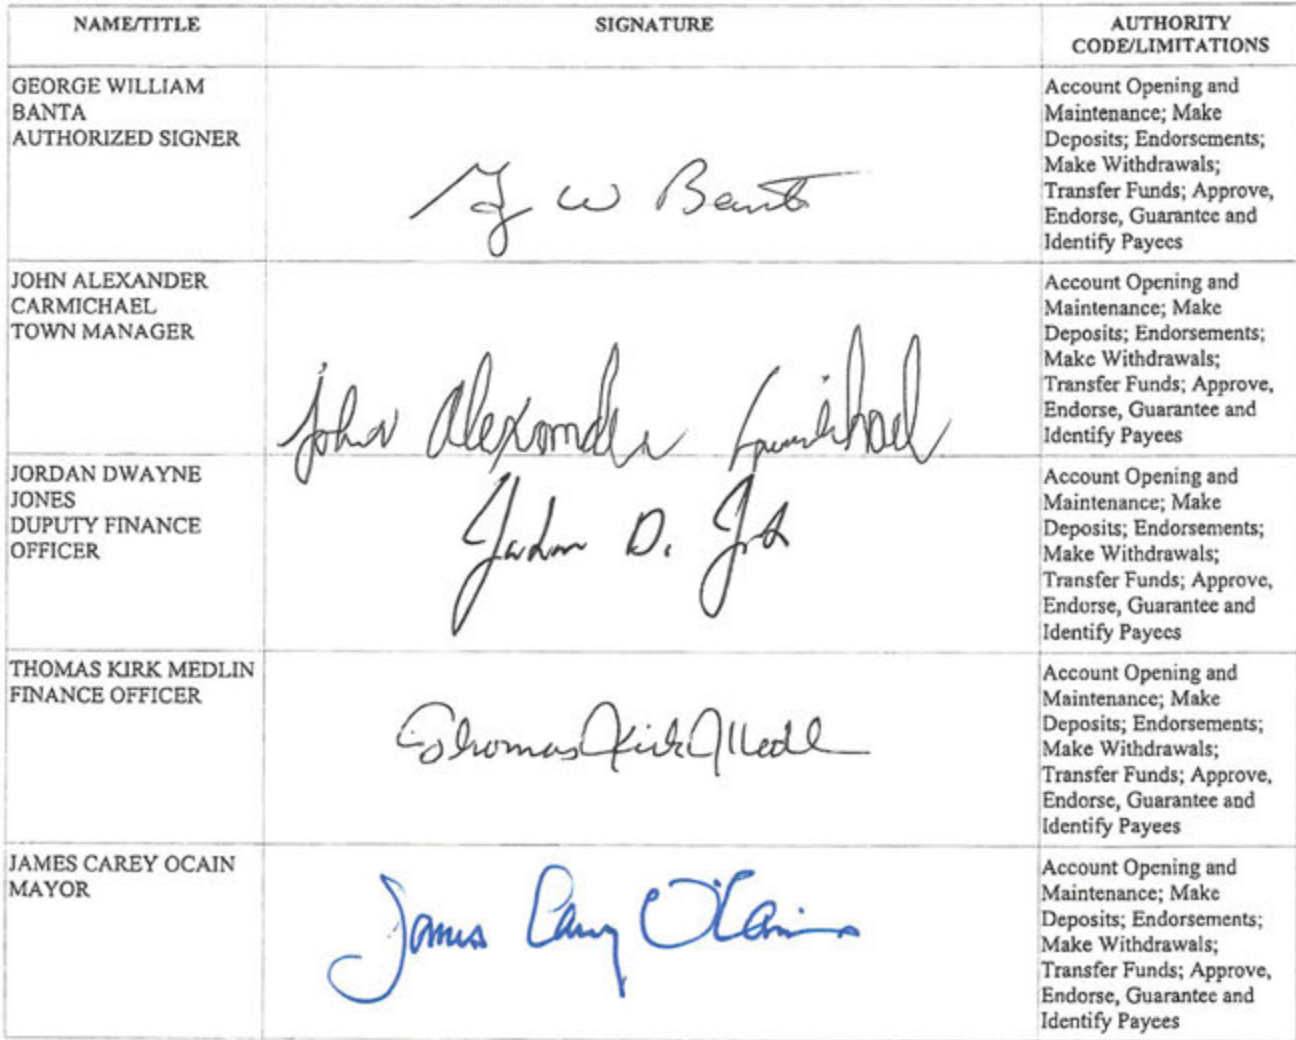 NAME/TITLE
SIGNATURE
AUTHORITY
CODE/LIMITATIONS
GEORGE WILLIAM
BANTA
AUTHORIZED SIGNER
G W Banta
Account Opening and
Maintenance; Make
Deposits; Endorsements;
Make Withdrawals;
Transfer Funds; Approve,
Endorse, Guarantee and
Identify Payees
JOHN ALEXANDER
CARMICHAEL
TOWN MANAGER
John Alexander Carmichael
Account Opening and
Maintenance; Make
Deposits; Endorsements;
Make Withdrawals;
Transfer Funds; Approve,
Endorse, Guarantee and
Identify Payees
JORDAN DWAYNE
JONES
DUPUTY FINANCE
OFFICER
Jordan D.
Account Opening and
Maintenance; Make
Deposits; Endorsements;
Make Withdrawals;
Transfer Funds; Approve,
Endorse, Guarantee and
Identify Payees
THOMAS KIRK MEDLIN
FINANCE OFFICER
Thomas Kirk Medl
Account Opening and
Maintenance; Make
Deposits; Endorsements;
Make Withdrawals;
Transfer Funds; Approve,
Endorse, Guarantee and
Identify Payees
JAMES CAREY OCAIN
MAYOR
James Carey O'Cain
Account Opening and
Maintenance; Make
Deposits; Endorsements;
Make Withdrawals;
Transfer Funds; Approve,
Endorse, Guarantee and
Identify Payees